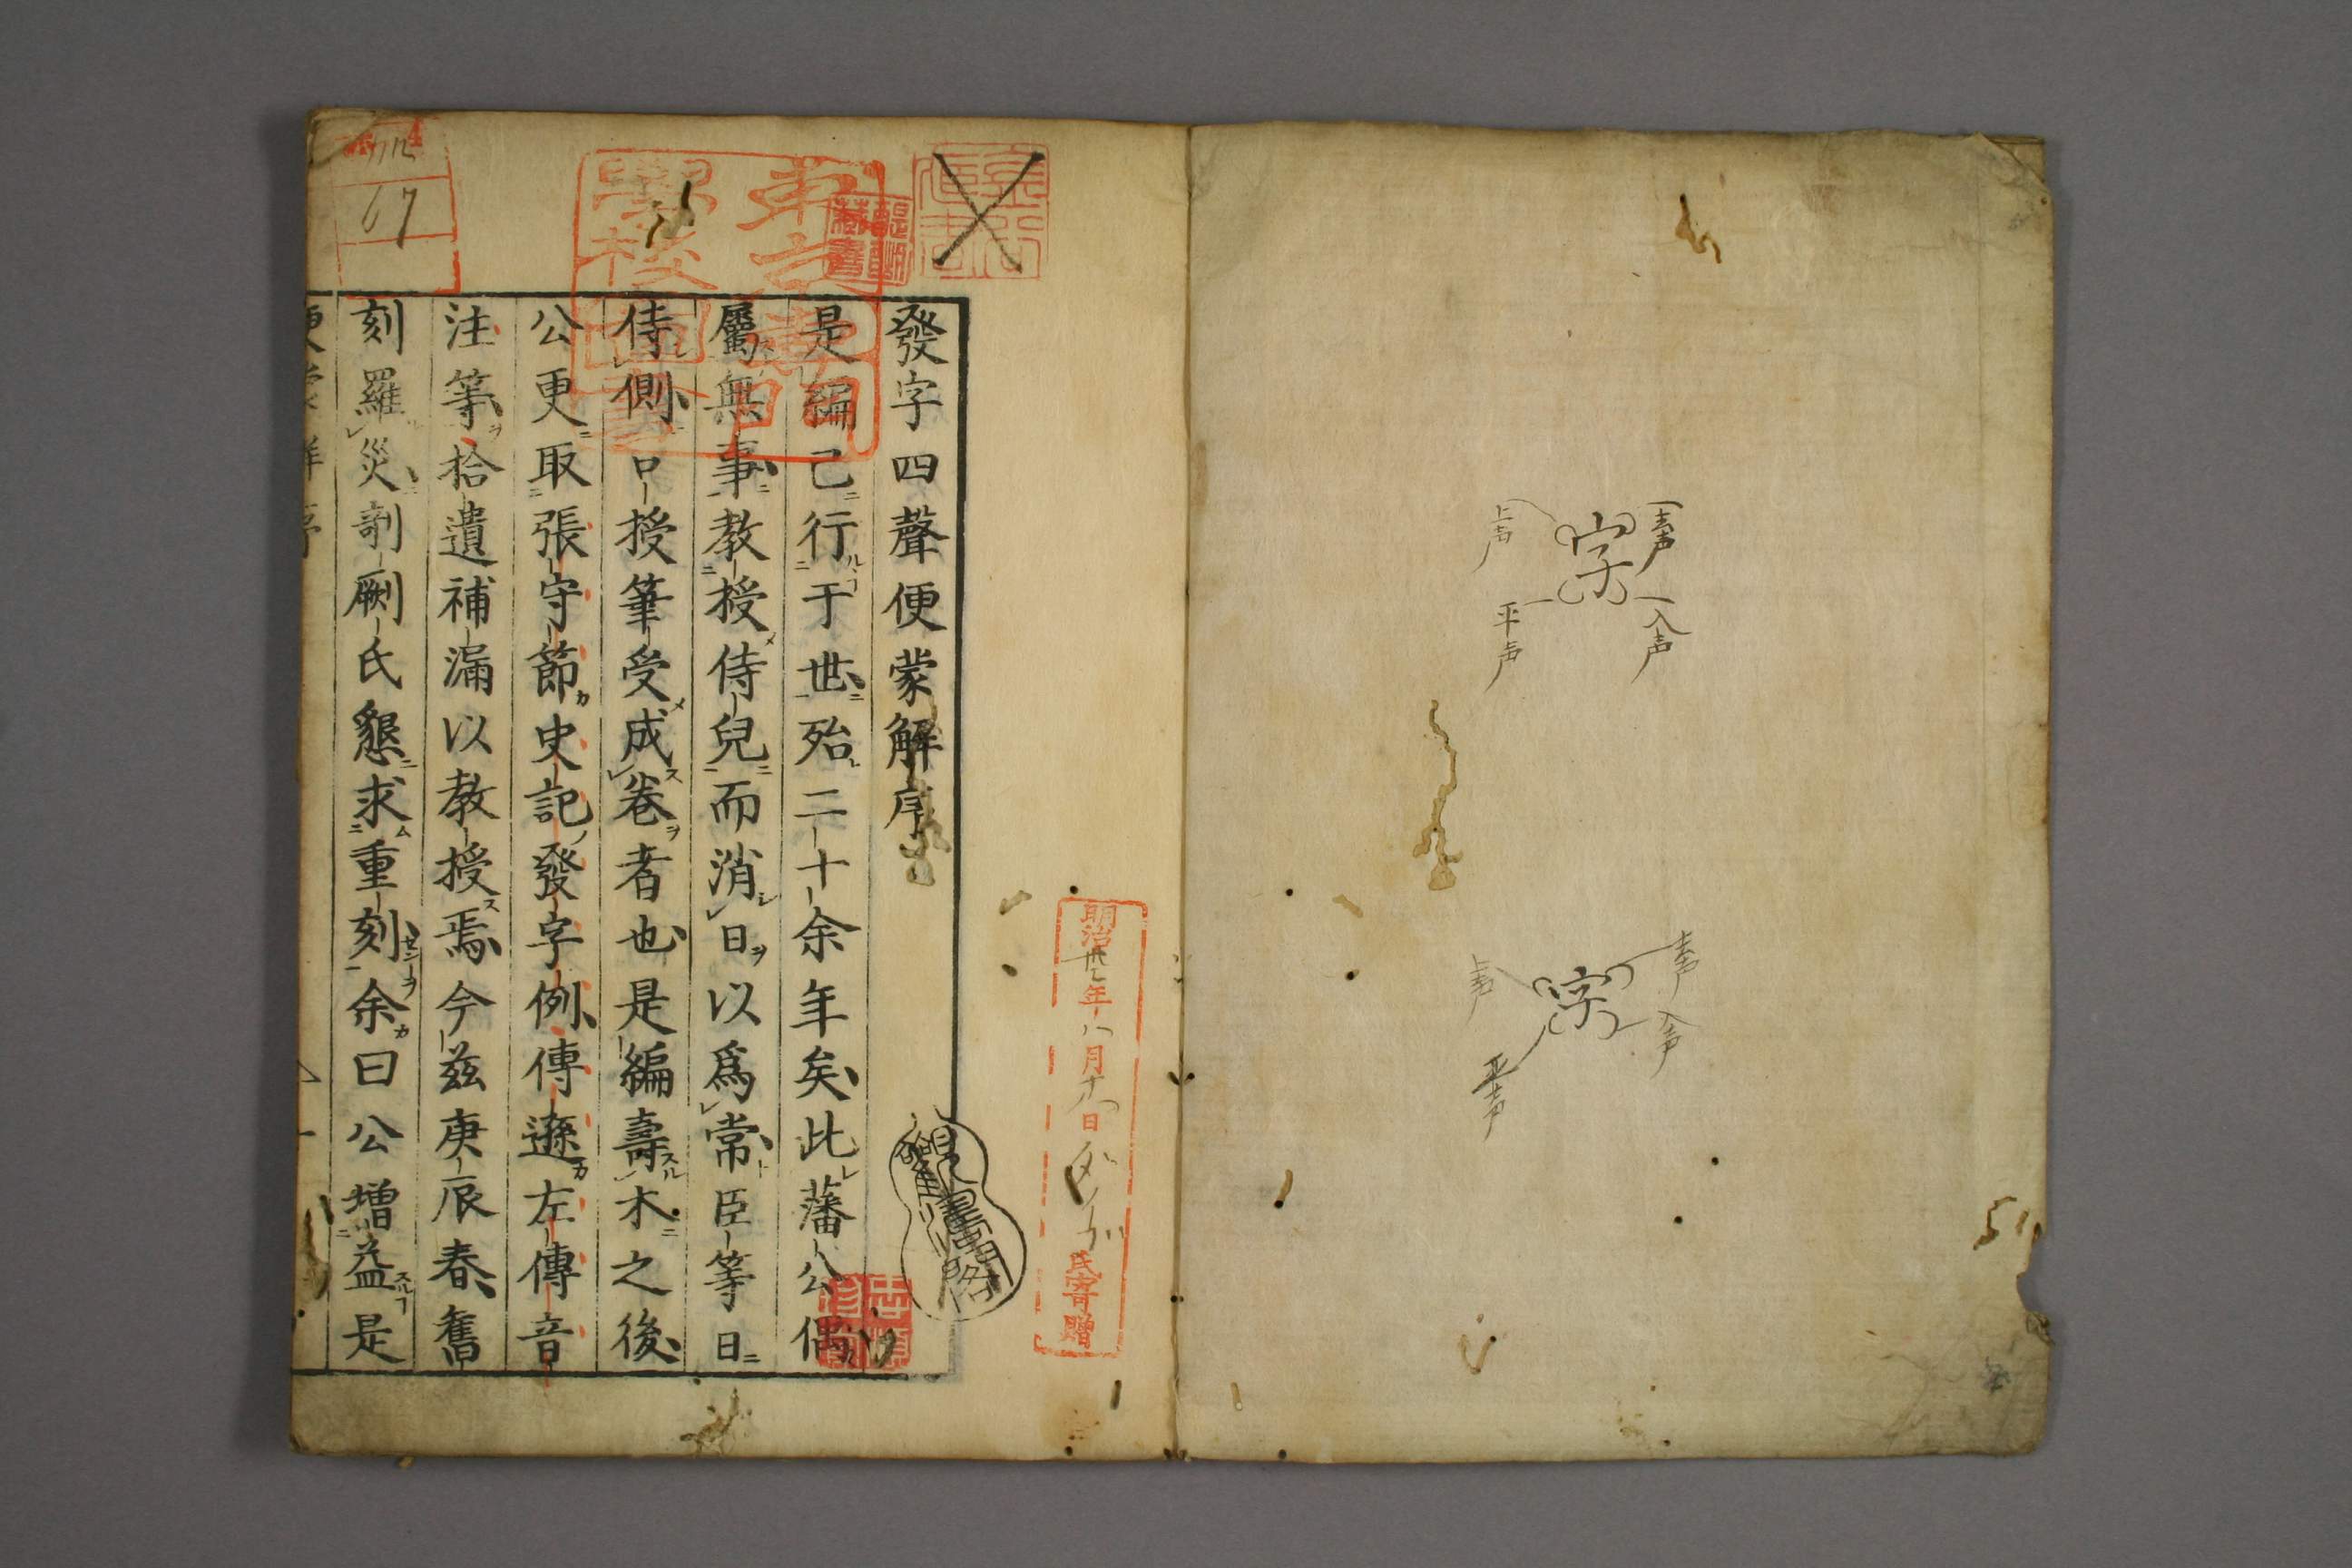 去声
上声
字
入声
平声
去声
上声
字
入声
平声
明治卅七年八月十八日
氏寄贈
發字四聲便蒙解序
是編已行于世殆二十余年矣此藩公偶
屬無事教授侍兒而消日以爲常臣等日
侍側口授筆受成卷者也是編壽木之後
公更取張守節史記發字例傳遜左傳音
注等拾遺補漏以教授焉今茲庚辰春舊
刻羅災剞劂氏懇求重刻余曰公增益是
67